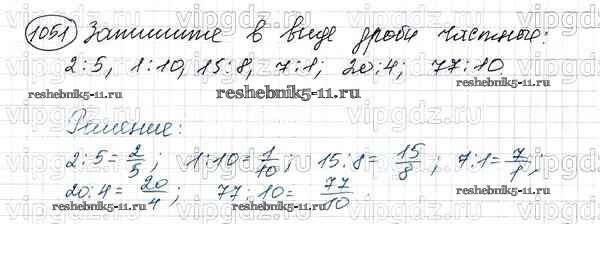 1051 Запишите в виде дроби частные:
2:5, 1:10, 15:8, 7:1; 20:4; 77:10.
reshebnik5-11.ru reshebnik5-11.ru reshebnik5-11.ru
Решение:
2:5=2/5; 1:10=1/10; 15:8=15/8; 7:1=7/1;
20:4=20/4; 77:10=77/10
reshebnik5-11.ru reshebnik5-11.ru reshebnik5-11.ru